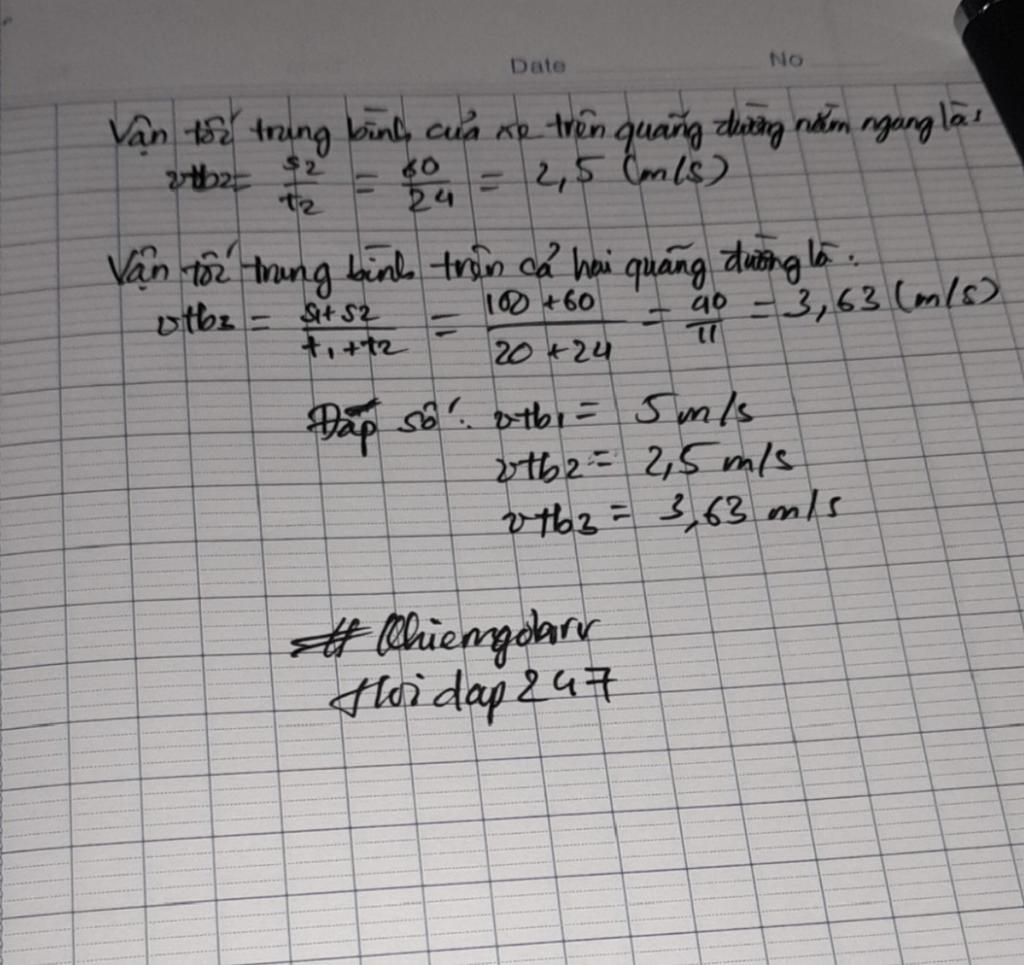 Date No
Vận tốc trung bình của xe trên quãng đường nằm ngang là:
vtb2 = s2/t2 = 60/24 = 2,5 (m/s)
Vận tốc trung bình trên cả hai quãng đường là:
vtb3 = s1+s2/t1+t2 = 100+60/20+24 = 40/11 = 3,63 (m/s)
Đáp số: vtb1 = 5 m/s
vtb2 = 2,5 m/s
vtb3 = 3,63 m/s
Hoidap247